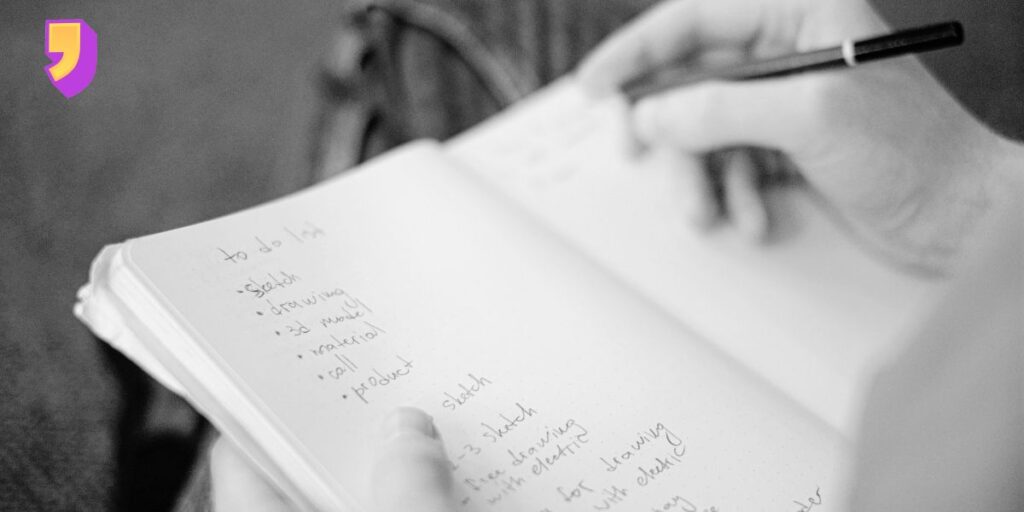 to do list
• sketch
• drawing
• 3d model
• material
• call
• product
sketch
2-3 sketch
• free drawing
with electric
for drawing
with electric